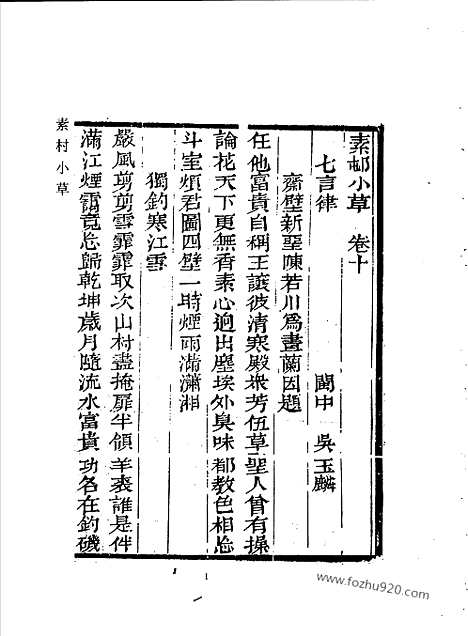 素邨小草 卷十
七言律 閩中 吳玉麟
齋壁新堊陳若川爲畫蘭因題
任他富貴自稱王讓彼清寒殿衆芳伍草聖人曾有操
論花天下更無香素心逈出塵埃外臭味都教色相忘
斗室煩君圖四壁一時煙雨滿瀟湘
獨釣寒江雪
嚴風剪剪雪霏霏取次山村盡掩扉半領羊裘誰是伴
滿江煙靄竟忘歸乾坤歲月隨流水富貴功名在釣磯
素村小草
1
www.fozhu920.com